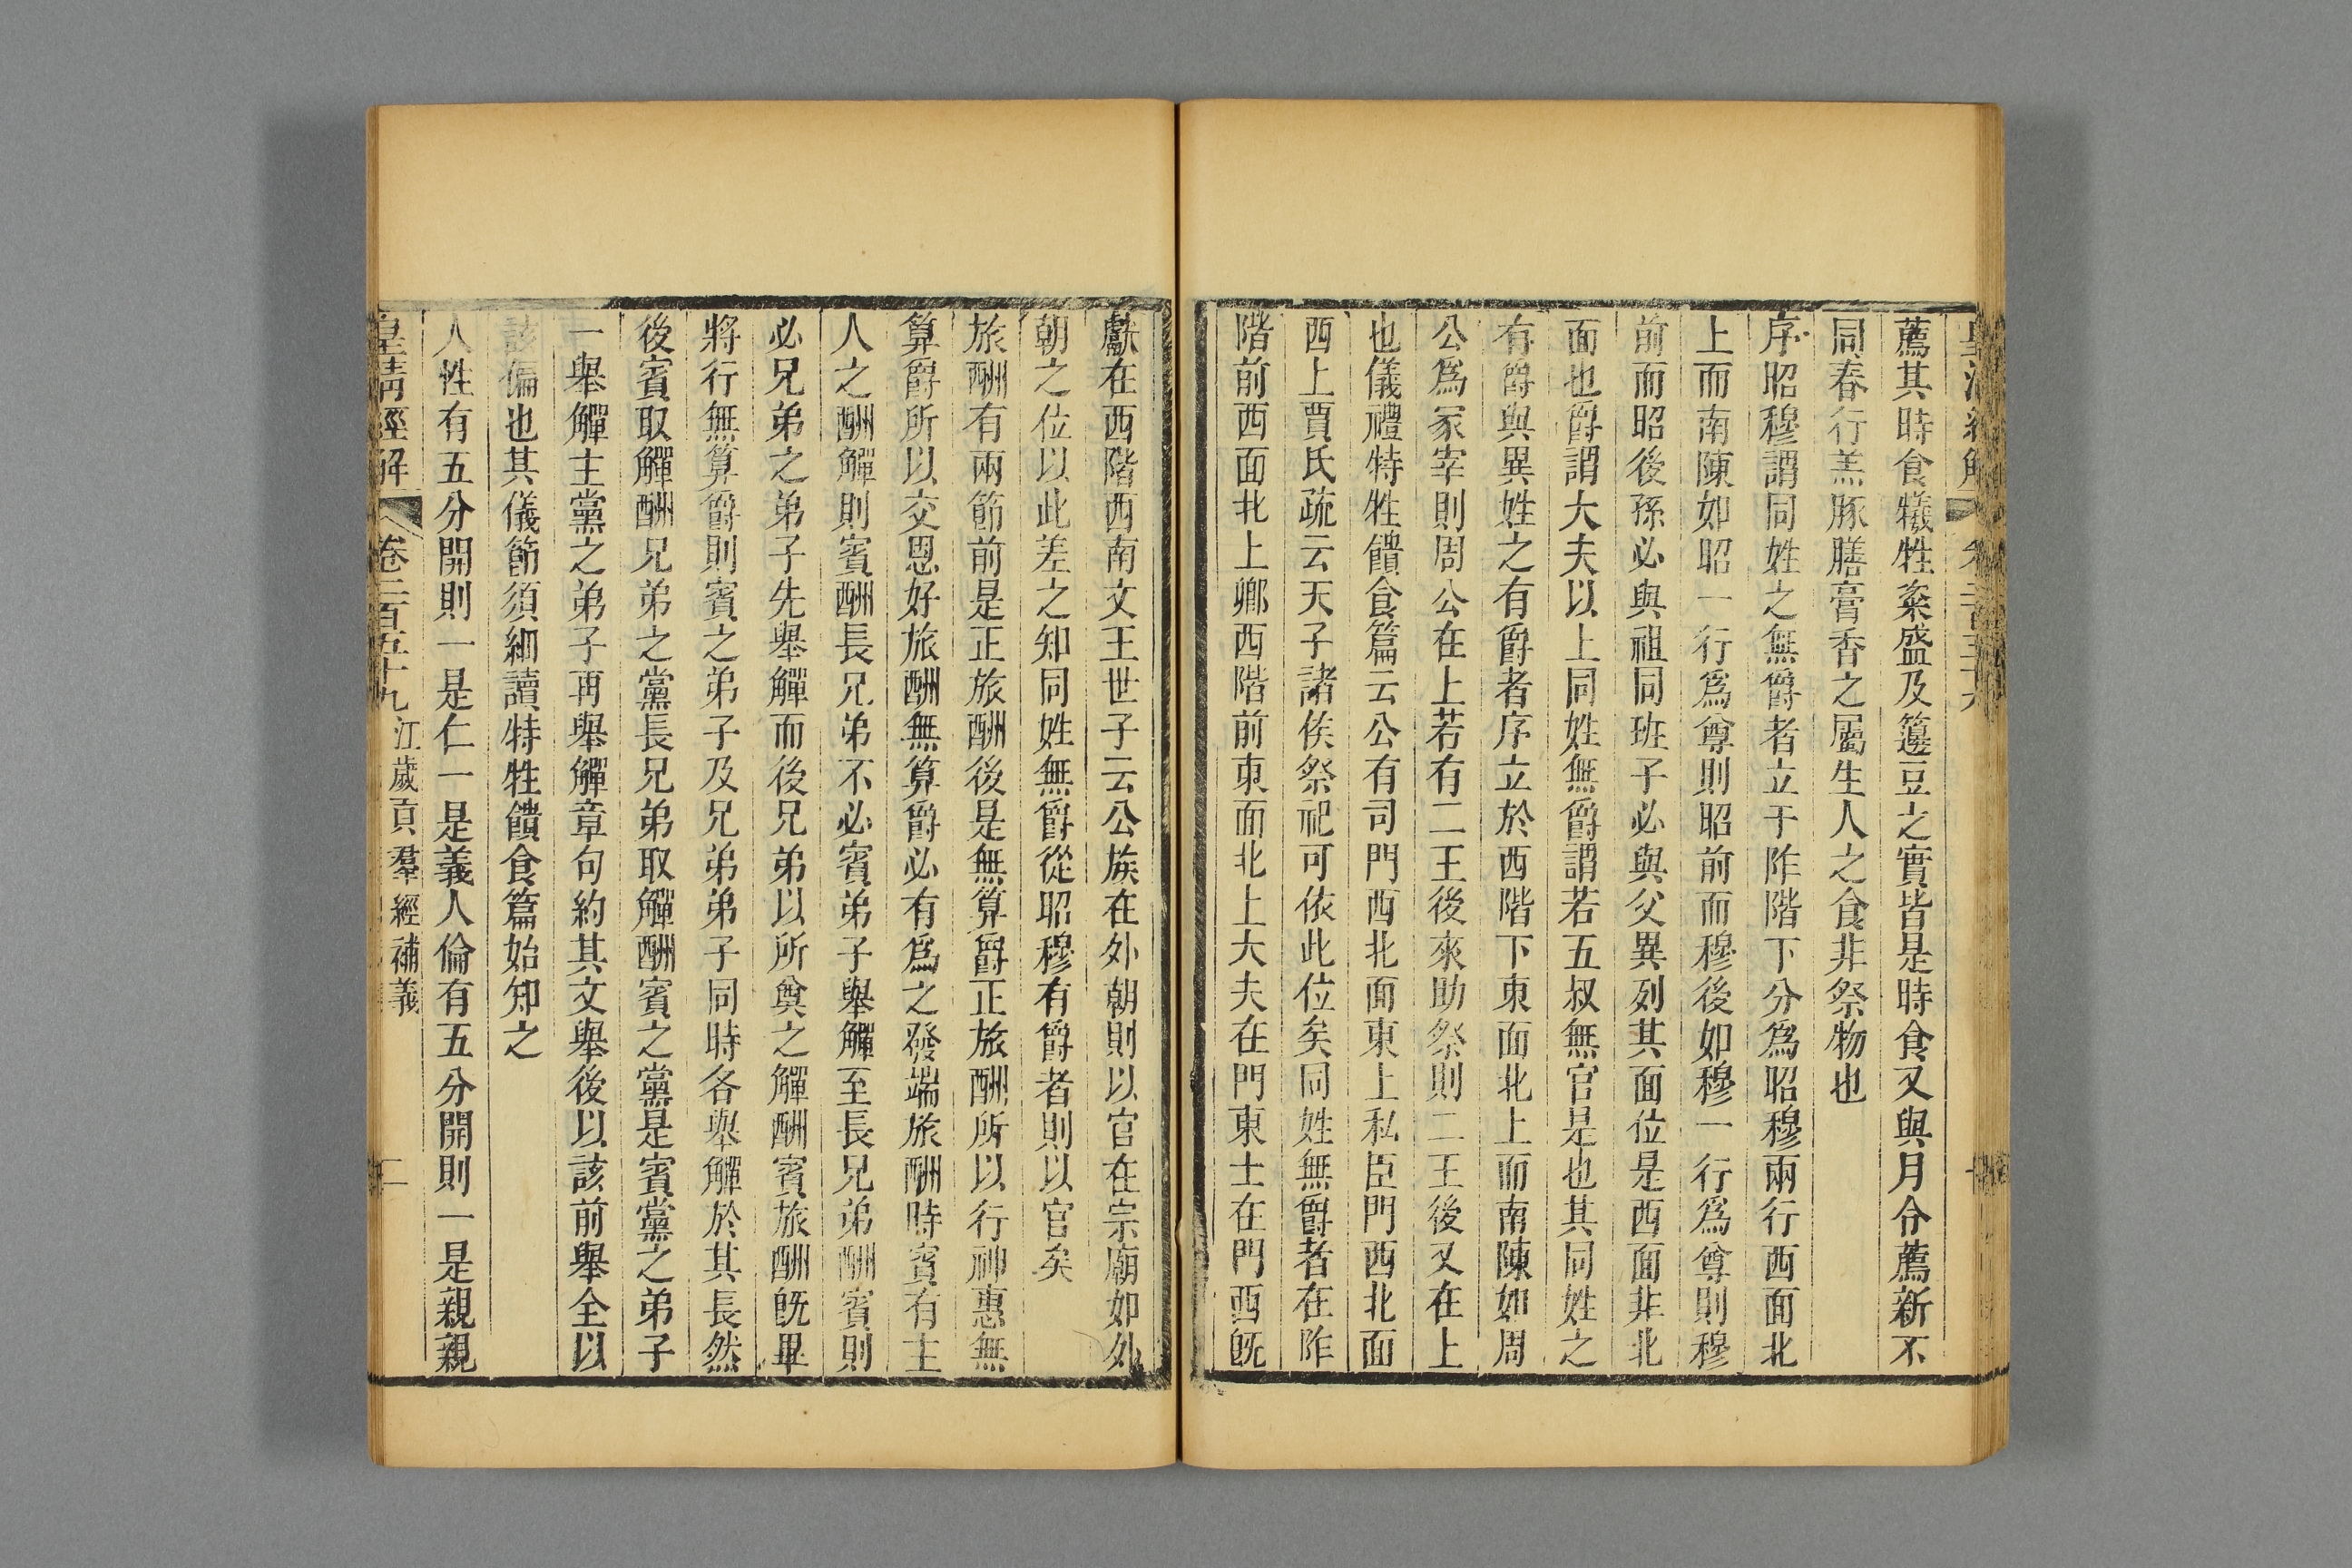 薦其時食犧牲粢盛及籩豆之實皆是時食又與月令薦新不
同春行羔豚膳膏香之屬生人之食非祭物也
序昭穆謂同姓之無爵者立于阼階下分爲昭穆兩行西面北
上而南陳如昭一行爲尊則昭前而穆後如穆一行爲尊則穆
前而昭後孫必與祖同班子必與父異列其面位是西面非北
面也爵謂大夫以上同姓無爵謂若五叔無官是也其同姓之
有爵與異姓之有爵者序立於西階下東面北上而南陳如周
公爲冢宰則周公在上若有二王後來助祭則二王後又在上
也儀禮特牲饋食篇云公有司門西北面東上私臣門西北面
西上賈氏疏云天子諸侯祭祀可依此位矣同姓無爵者在阼
階前西面北上卿西階前東面北上大夫在門東士在門西旣
獻在西階西南文王世子云公族在外朝則以官在宗廟如外
朝之位以此差之知同姓無爵從昭穆有爵者則以官矣
旅酬有兩節前是正旅酬後是無算爵正旅酬所以行神惠無
算爵所以交恩好旅酬無算爵必有爲之發端旅酬時賓有主
人之酬觶則賓酬長兄弟不必賓弟子舉觶至長兄弟酬賓則
必兄弟之弟子先舉觶而後兄弟以所奠之觶酬賓旅酬旣畢
將行無算爵則賓之弟子及兄弟弟子同時各舉觶於其長然
後賓取觶酬兄弟之黨長兄弟取觶酬賓之黨是賓黨之弟子
一舉觶主黨之弟子再舉觶章句約其文舉後以該前舉全以
該偏也其儀節須細讀特牲饋食篇始知之
人性有五分開則一是仁一是義人倫有五分開則一是親親
皇淸經解 卷二百五十九 江歲貢羣經補義 二